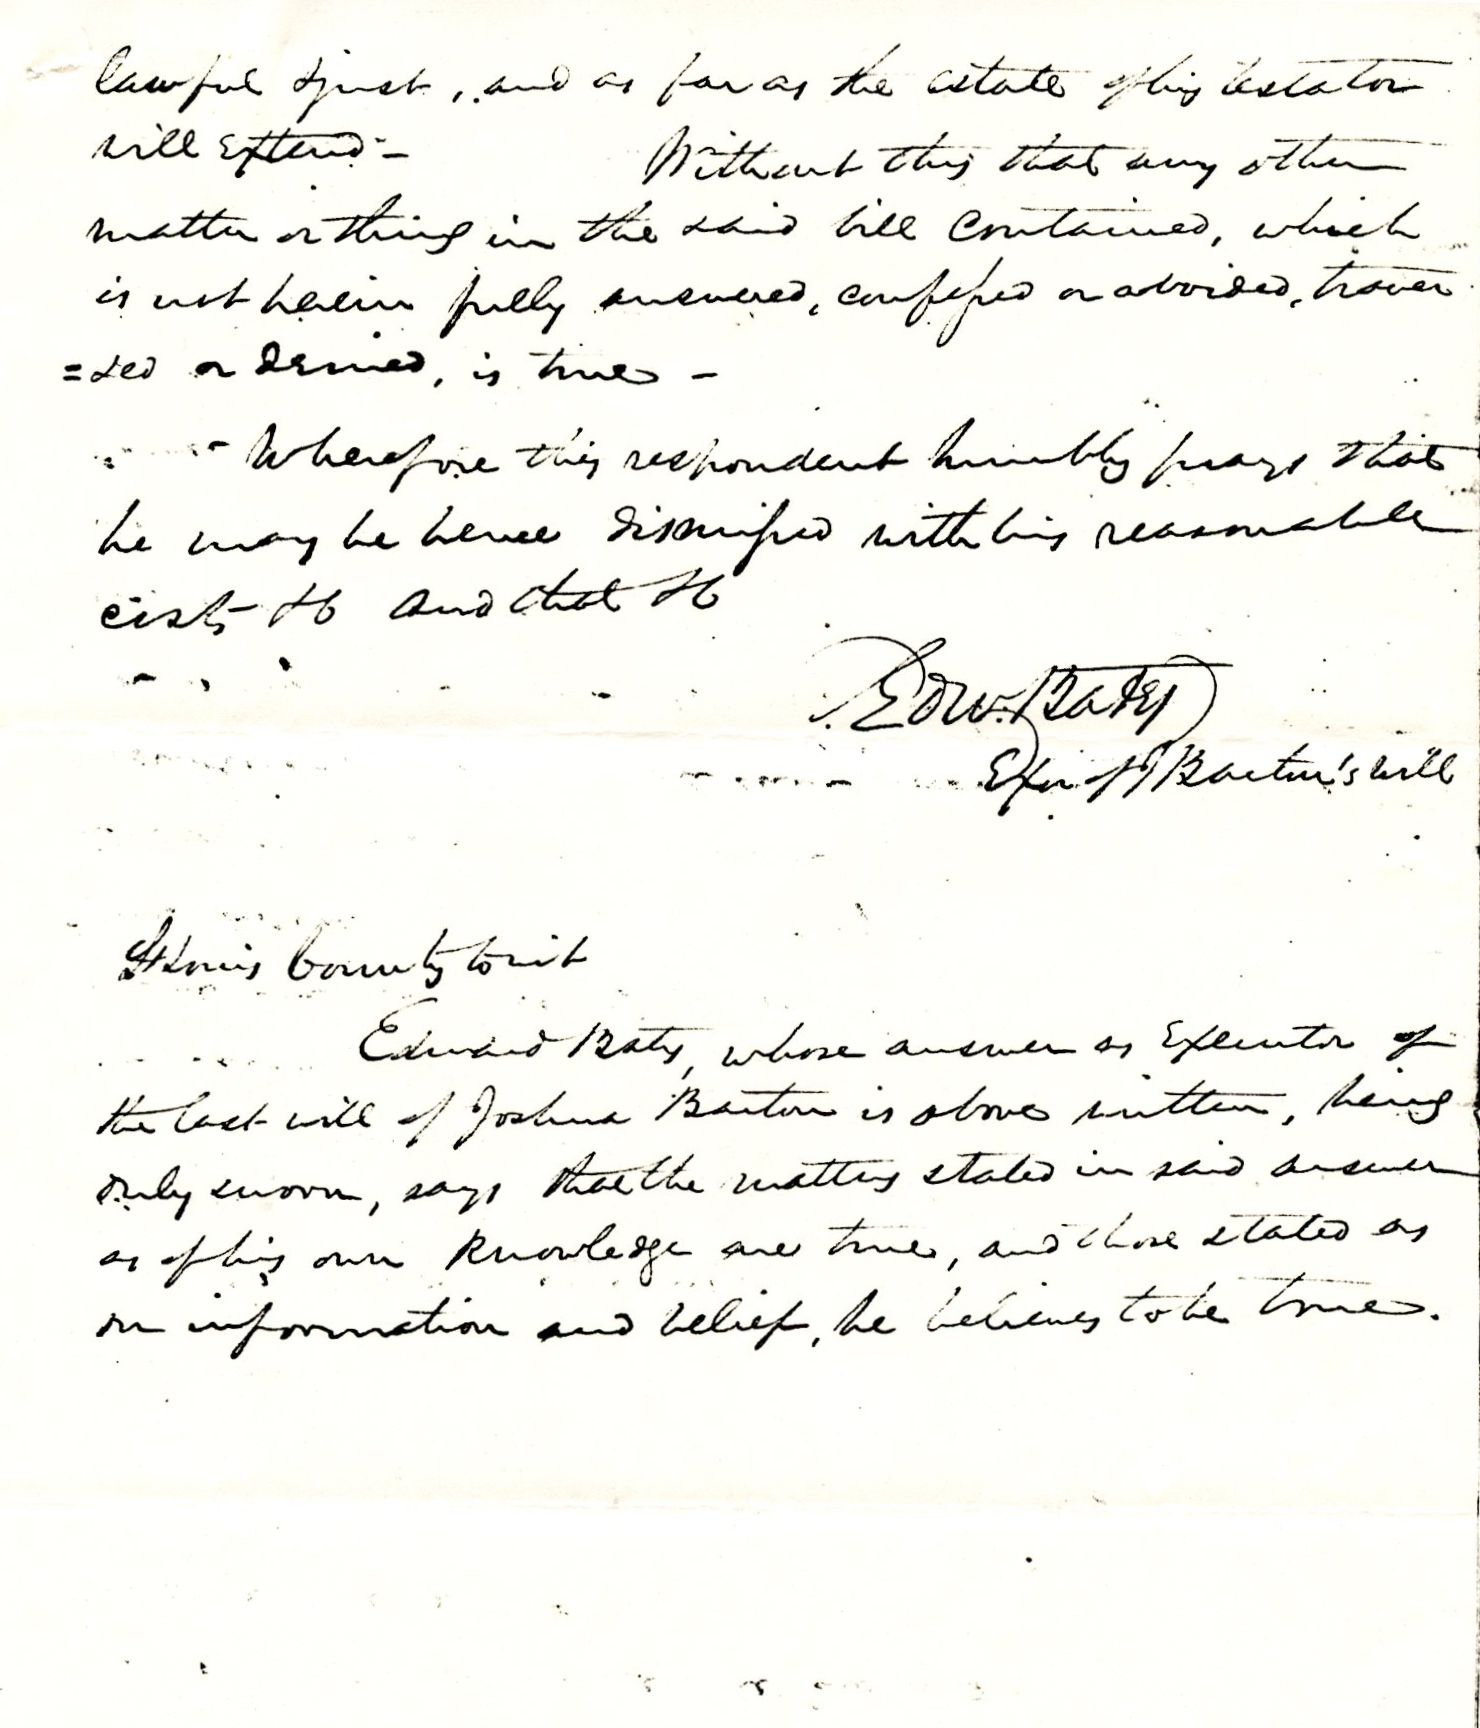 lawful & just, and as far as the estate of his testator
will extend - Without this that any other
matter or thing in the said bill contained, which
is not herein fully answered, confessed or avoided, traver
=sed or denied, is true -
Wherefore this respondent humbly prays that
he may be hence dismissed with his reasonable
costs &c and that &c
Edw. Bates
Exor of J Barton's will
St Louis County to wit
Edward Bates, whose answer as Executor of
the last will of Joshua Barton is above written, being
duly sworn, says that the matters stated in said answer
as of his own knowledge are true, and those stated as
on information and belief, he believes to be true.